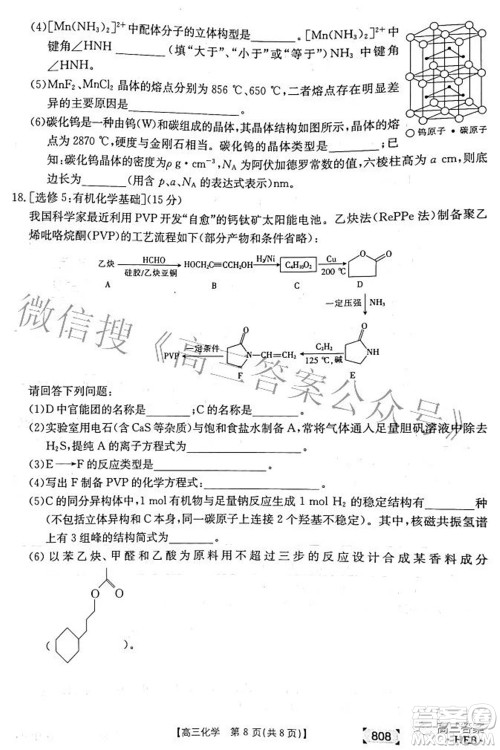 (4)[Mn(NH₃)₂]²⁺中配体分子的立体构型是________;[Mn(NH₃)₂]²⁺中
键角∠HNH________(填“大于”、“小于”或“等于”)NH₃中键
角∠HNH。
(5)MnF₂、MnCl₂晶体的熔点分别为856 ℃、650 ℃,二者熔点存在明显差
异的主要原因是________。
(6)碳化钨是一种由钨(W)和碳组成的晶体,其晶体结构如图所示,熔点
为2870 ℃,硬度与金刚石相当。碳化钨的化学式为________,碳
化钨晶体的密度为ρ g·cm⁻³,N_A为阿伏加德罗常数的值,六棱柱高为a cm,则底
○钨原子 •碳原子
18.[选修5:有机化学基础](15分)
我国科学家最近利用PVP开发“自愈”的钙钛矿太阳能电池。乙炔法(RePPe法)制备聚乙
烯吡咯烷酮(PVP)的工艺流程如下(部分产物和条件省略):
乙炔 HCHO 硅胶/乙炔亚铜 HOCH₂C≡CCH₂OH H₂/Ni C₄H₁₀O₂ Cu 200 ℃ O O
A B C D
一定压强 NH₃
PVP 一定条件 N—CH=CH₂ O C₂H₂ 125 ℃,碱 O NH
F E
请回答下列问题:
(1)D中官能团的名称是________;C的名称是________。
(2)实验室用电石(含CaS等杂质)与饱和食盐水制备A,常将气体通入足量胆矾溶液中除去
H₂S,提纯A的离子方程式为________。
(3)E→F的反应类型是________。
(4)写出F制备PVP的化学方程式:________。
(5)C的同分异构体中,1 mol有机物与足量钠反应生成1 mol H₂的稳定结构有________种
(不包括立体异构和C本身,同一碳原子上连接2个羟基不稳定)。其中,核磁共振氢谱
上有3组峰的结构简式为________。
(6)以苯乙炔、甲醛和乙酸为原料用不超过三步的反应设计合成某香料成分
O
O
( )。
微信搜《高三答案公众号》
【高三化学 第8页(共8页)】
808
高三答案
·HEB·